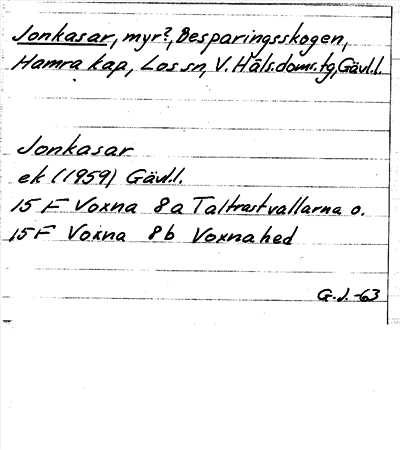 Jonkasar, myr?, Besparingsskogen,
Hamra kap, Los sn, V. Häls. doms. tg, Gävl.l.
Jonkasar
ek (1959) Gävl.l.
15 F Voxna 8a Taltrastvallarna o.
15F Voxna 8b Voxnahed
G.J.-63